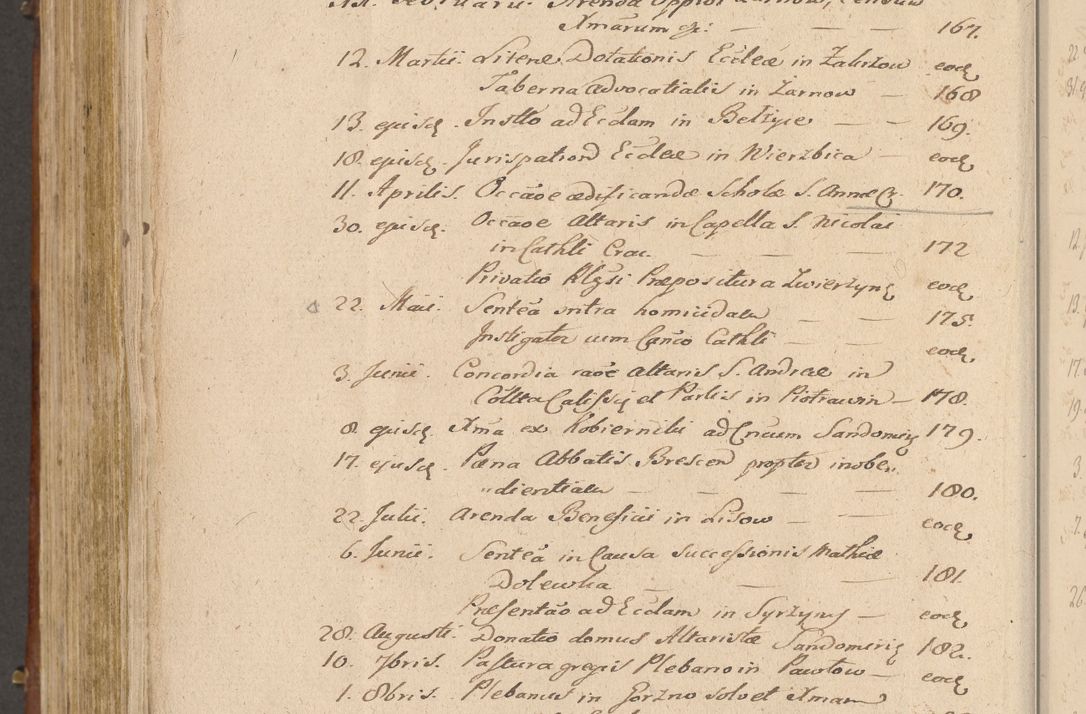 Xmarum &c: — — — 167.
12. Martii. Literæ Dotationis Eccleæ in Zakrzow eodē
Taberna Advocatialis in Żarnow — 168
13. ejusdē. Instło ad Ecclam in Bełżyce — — 169.
18. ejusdē. Jurispatron Eccleæ in Wierzbica — eodē
11. Aprilis. Occāōe ædificandæ Scholæ S. Annæ C. 170.
30. ejusdē. Occāōe Altaris in Capella S. Nicolai
in Cathli Crac. — — — 172
Privatio Præpositura Zwierzynē eodē
22. Maii. Senteā cntra homicidam — — 175.
Instigator cum Canco Cathli — — eodē
3. Junii. Concordia raōe Altaris S. Andreæ in
Collta Calissiē et Partis in Piotrawin — 178.
8. ejusdē. Xma ex Kobierniki ad Cncum Sandomirē 179.
17. ejusdē. Pæna Abbatis Brescen propter inobe„
„dientiam — — — — 180.
22. Julii. Arenda Beneficii in Lisow — — eodē
6. Junii. Senteā in Causa Successionis Mathiæ
Dolewka — — — 181.
Presentāo ad Ecclam in Syrzyny — eodē
28. Augusti. Donatio domus Altaristæ Sandomiriē 182.
10. 7bris. Pastura gregis Plebano in Pawłow — eodē
1. 8bris. Plebanus in Gorzno solvet Xmam